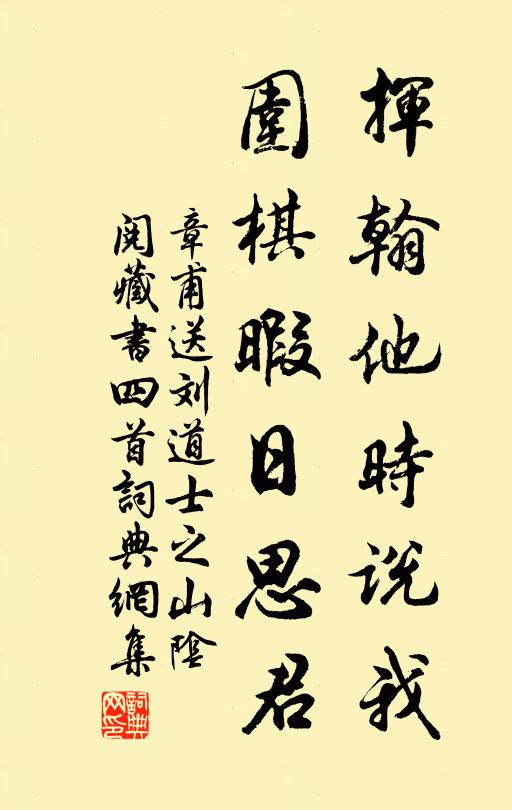 揮翰他時説我
圍棋暇日思君
章甫送刘道士之山陰
閱藏書四首詞典網集
詞典網印